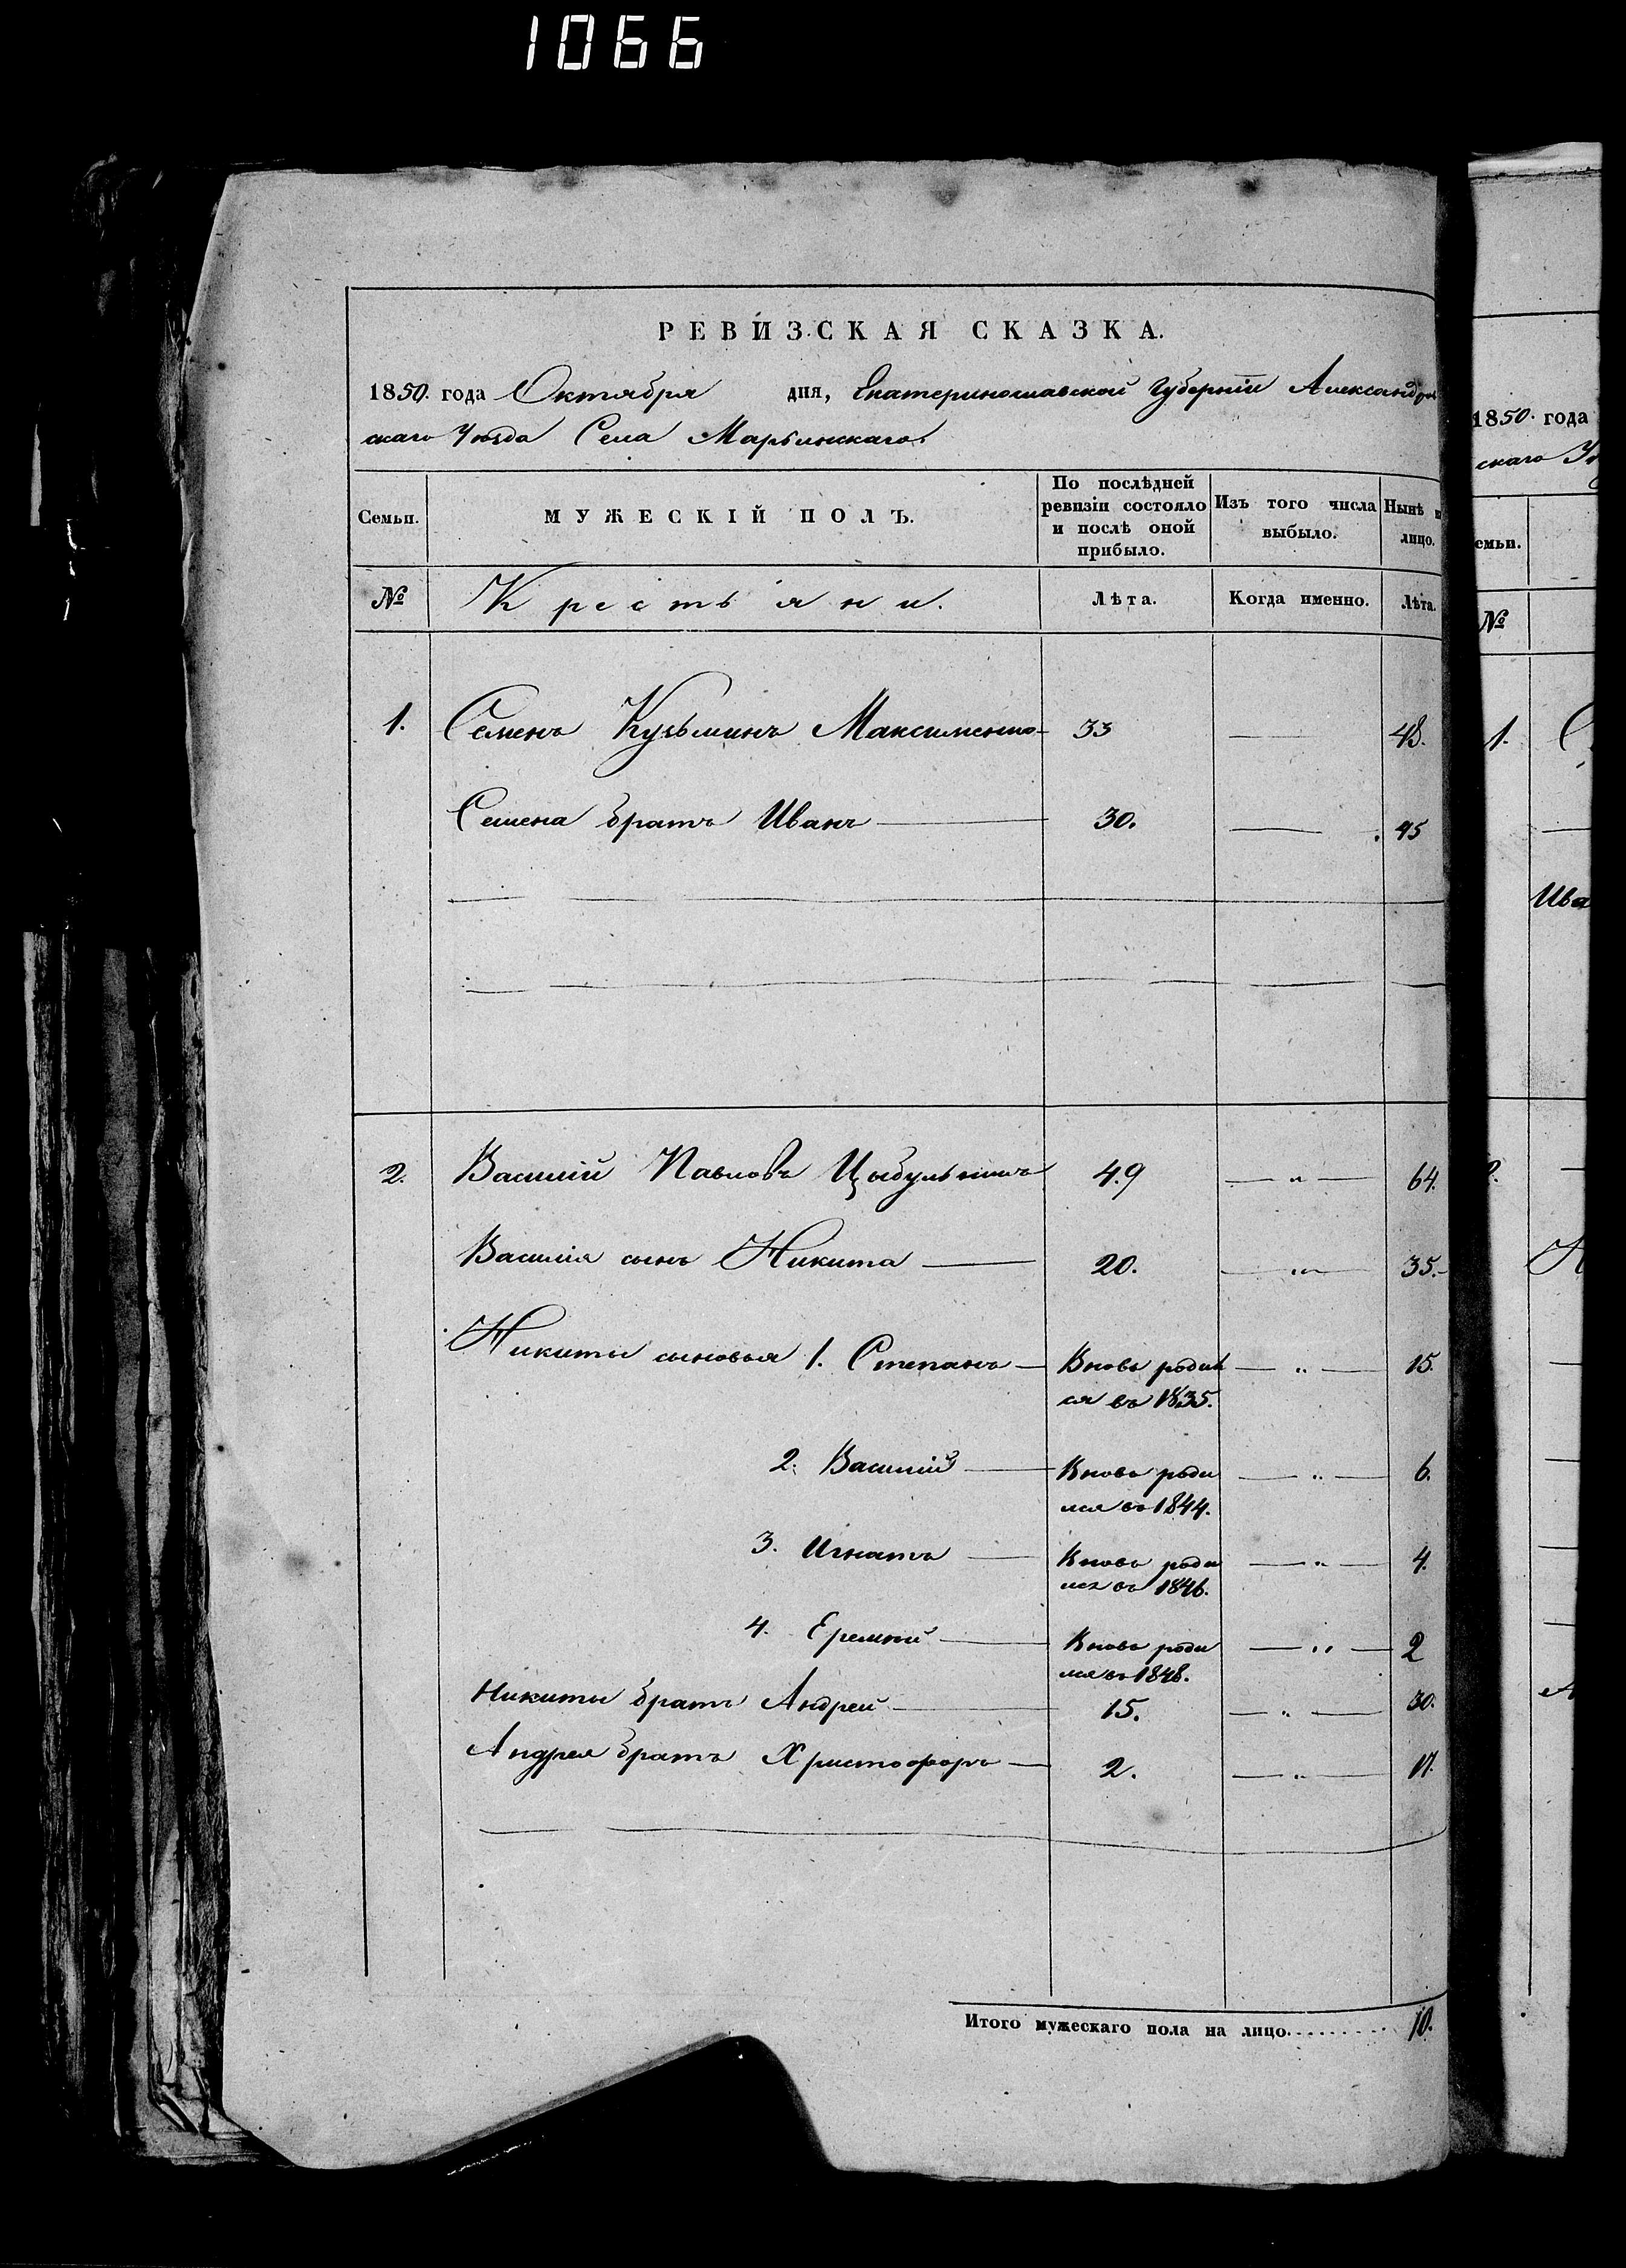 1066
РЕВИЗСКАЯ СКАЗКА.
1850. года Октября дня, Екатеринославской Губерніи Александров
скаго Уѣзда Села Марьинскаго.
Семьи. МУЖЕСКІЙ ПОЛЪ. По послѣдней ревизіи состояло и послѣ оной прибыло. Изъ того числа выбыло. Нынѣ н лицо.
№ Крестьяни. Лѣта. Когда именно. Лѣта.
1. Семенъ Кузьминъ Максименко 33 — 48.
Семена братъ Иванъ — 30. — 45
2. Василій Павловъ Цыбульникъ 49 — " — 64.
Василія сынъ Никита — 20. — " — 35.
Никиты сыновья 1. Степанъ — Вновь родил — " — 15.
ся въ 1835.
2. Василій — Вновь роди — " — 6.
лся въ 1844.
3. Игнатъ — Вновь роди — " — 4.
лся въ 1846.
4. Еремѣй — Вновь роди — " — 2
лся въ 1848.
Никиты братъ Андрей — 15. — " — 30.
Андрея братъ Христофоръ — 2. — " — 17.
Итого мужескаго пола на лицо......... 10.
1850. года
скаго У
емьи.
№
1. С
Ива
2.
Н
А